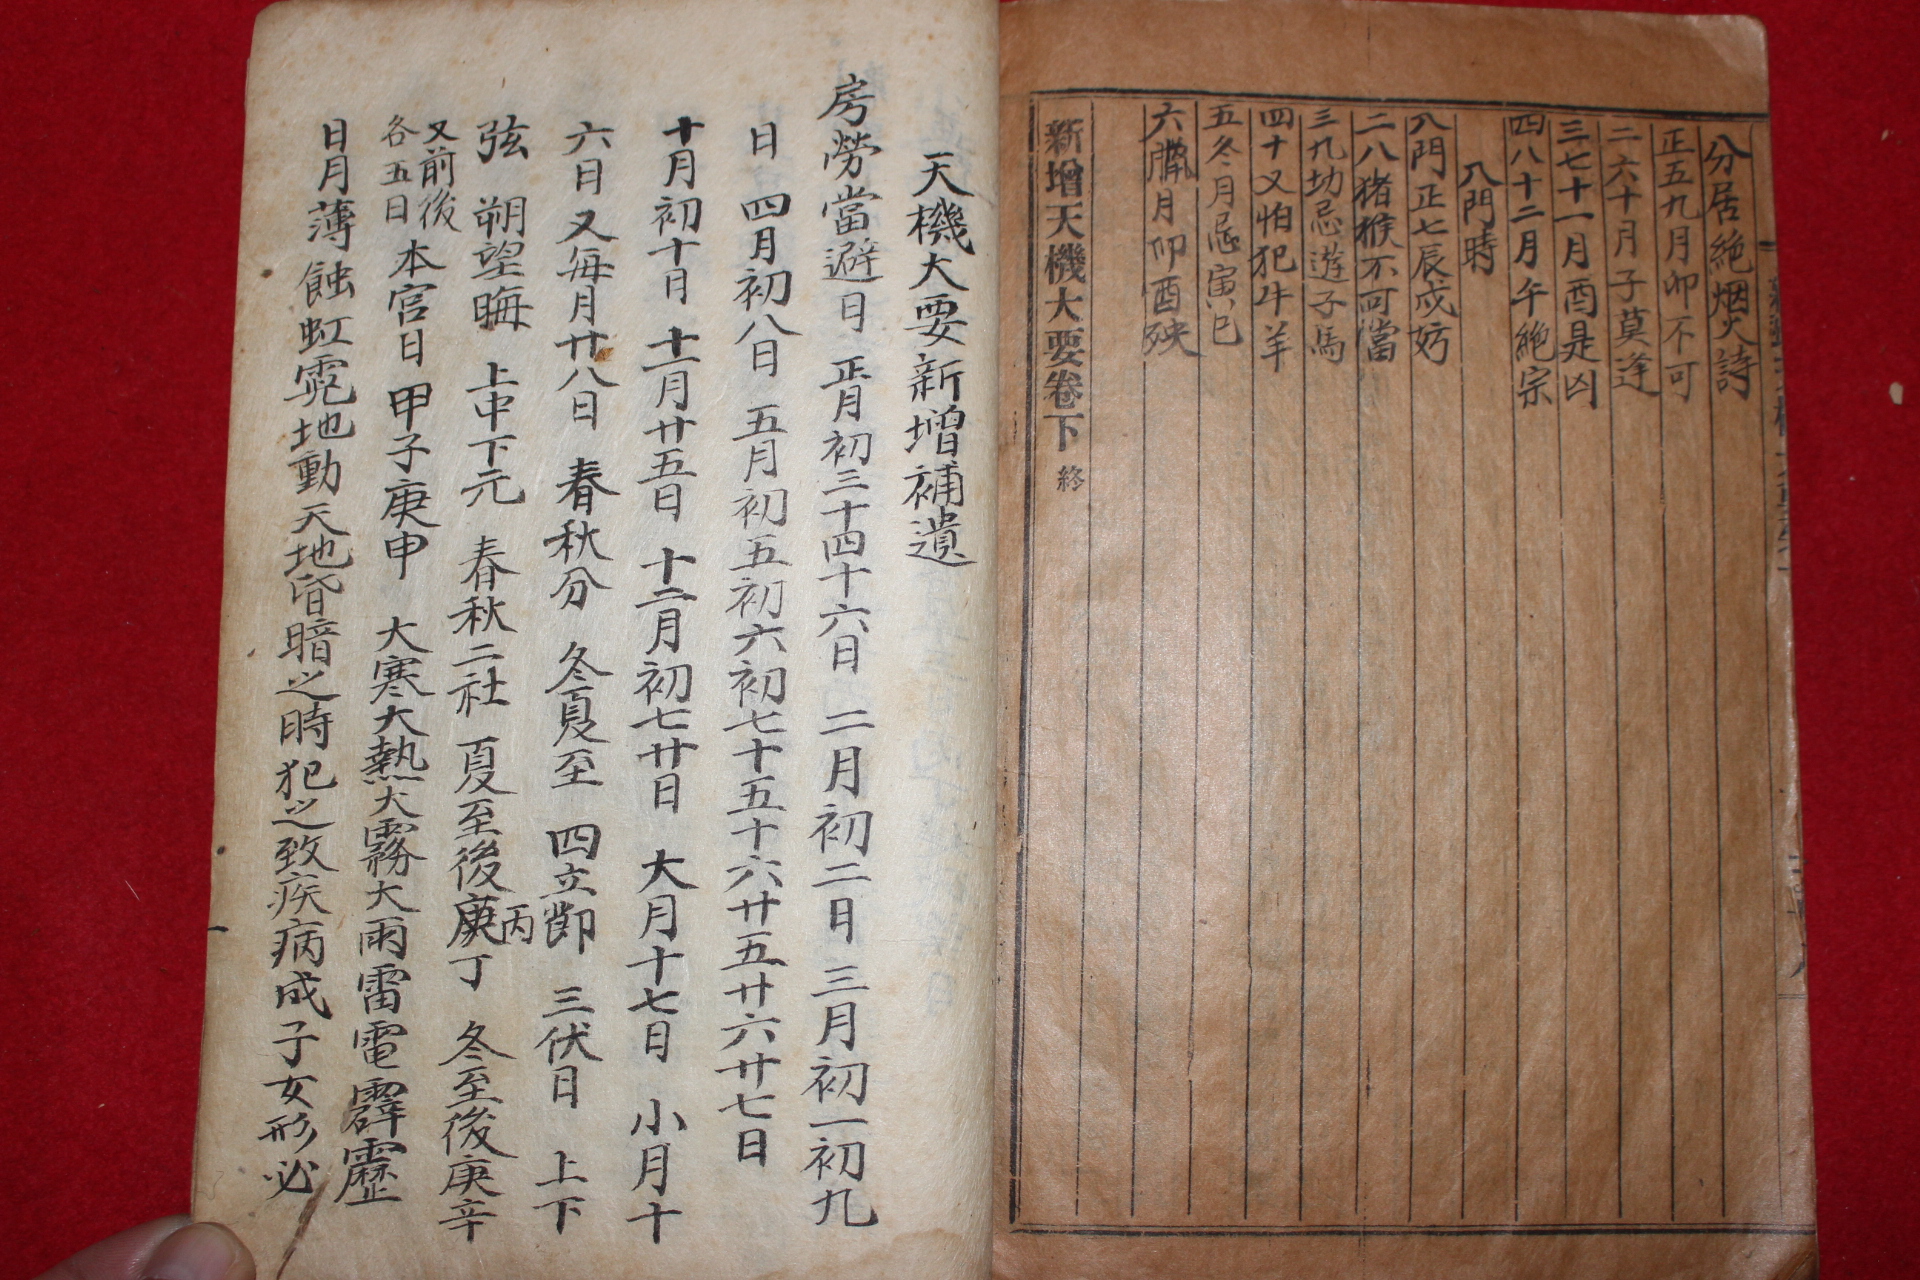 分居絶烟火詩
正五九月卯不可
二六十月子莫逢
三七十一月酉是凶
四八十二月午絶宗
八門時
八門正七辰戌妨
二八猪猴不可當
三九切忌遊子馬
四十又怕犯牛羊
五冬月忌寅巳
六臘月卯酉殃
新增天機大要卷下 終
天機大要新增補遺
房勞當避日 正月初三十四十六日 二月初二日 三月初一初九
日 四月初八日 五月初五初六初七十五十六廿五廿六廿七日
十月初十日 十一月廿五日 十二月初七廿日 大月十七日 小月十
六日 又每月廿八日 春秋分 冬夏至 四立節 三伏日 上下
弦 朔望晦 上中下元 春秋二社 夏至後庚丙丁 冬至後庚辛
又前後
各五日
本宮日 甲子庚申 大寒大熱大霧大雨雷電霹靂
日月薄蝕虹霓地動天地昏暗之時犯之致疾病成子女形必